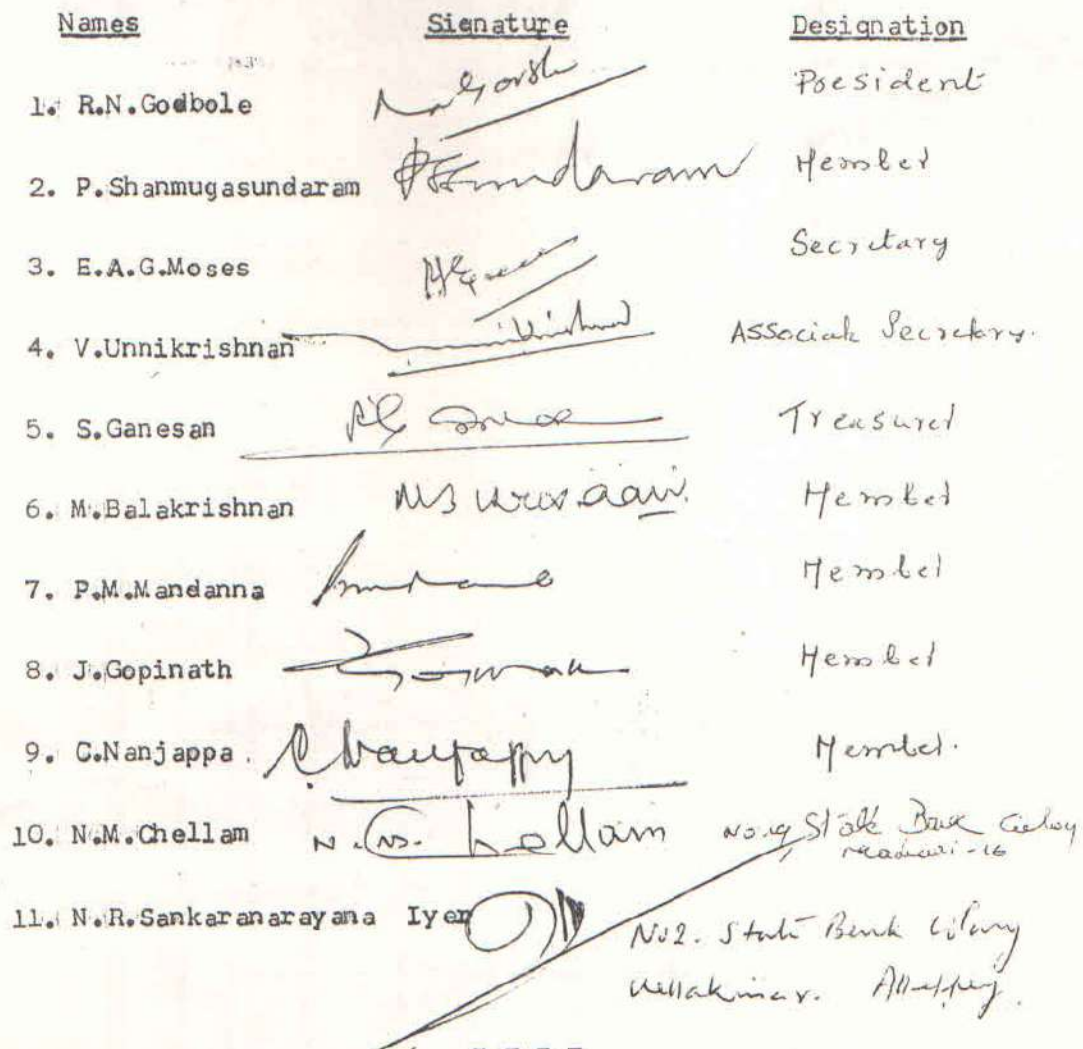 Names Signature Designation
1. R.N.Godbole President
2. P.Shanmugasundaram PSSundaram Member
3. E.A.G.Moses Secretary
4. V.Unnikrishnan Associate Secretary.
5. S.Ganesan Treasurer
6. M.Balakrishnan Member
7. P.M.Mandanna Member
8. J.Gopinath Member
9. C.Nanjappa. C.Nanjappa Member.
10. N.M.Chellam N.M. Chellam No.9 State Bank Colony
Madurai-16
11. N.R.Sankaranarayana Iyer No2. State Bank Colony
Alleppey.